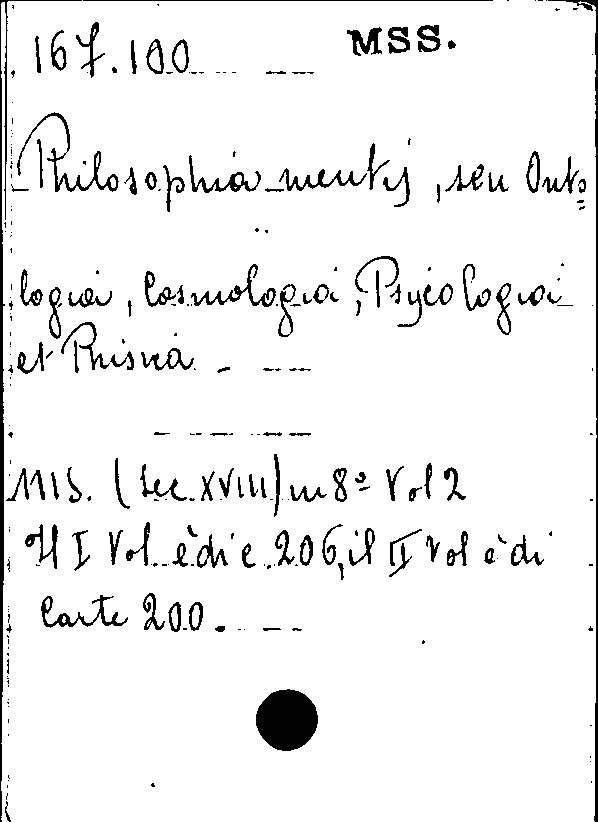 167.100 MSS.
Philosophia mentis, seu Onto=
logia, Cosmologia, Psycologia
et Phisica
MS. (Sec. XVIII) in 8º Vol 2
Il I Vol. è di c. 206, il II Vol è di
Carte 200.